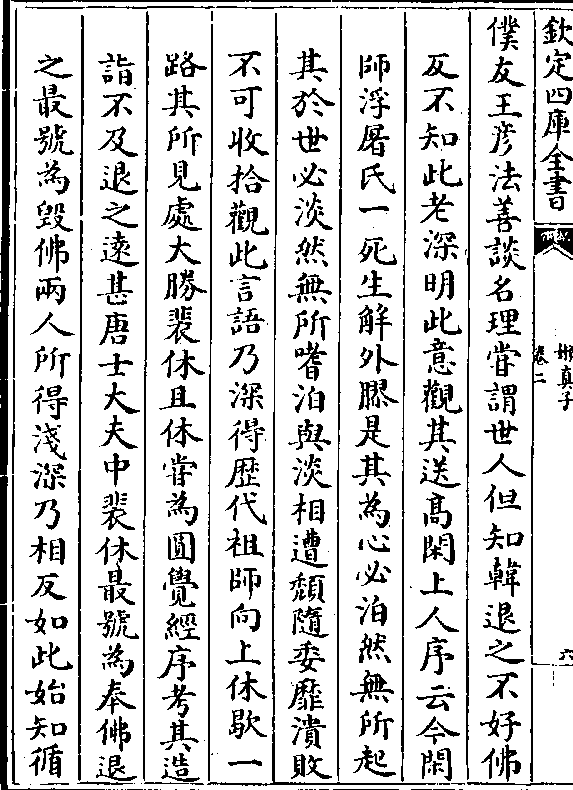 欽定四庫全書
嬾真子
卷二
六
僕友王彦法善談名理嘗謂世人但知韓退之不好佛
反不知此老深明此意觀其送髙閑上人序云今閑
師浮屠氏一死生解外膠是其為心必泊然無所起
其於世必淡然無所嗜泊與淡相遭頽隨委靡潰敗
不可收拾觀此言語乃深得歴代祖師向上休歇一
路其所見處大勝裴休且休嘗為圓覺經序考其造
詣不及退之逺甚唐士大夫中裴休最號為奉佛退
之最號為毀佛兩人所得淺深乃相反如此始知循